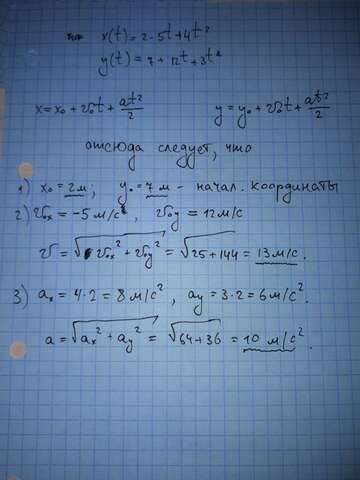 x(t) = 2 - 5t + 4t²
y(t) = 7 + 12t + 3t²
x = x₀ + v₀t + at²/2 y = y₀ + v₀t + at²/2
отсюда следует, что
1) x₀ = 2 м; y₀ = 7 м - начал. координаты
2) v₀ₓ = -5 м/с, v₀y = 12 м/с
v = √(v₀ₓ² + v₀y²) = √(25 + 144) = 13 м/с.
3) aₓ = 4·2 = 8 м/с², ay = 3·2 = 6 м/с².
a = √(aₓ² + ay²) = √(64 + 36) = 10 м/с².